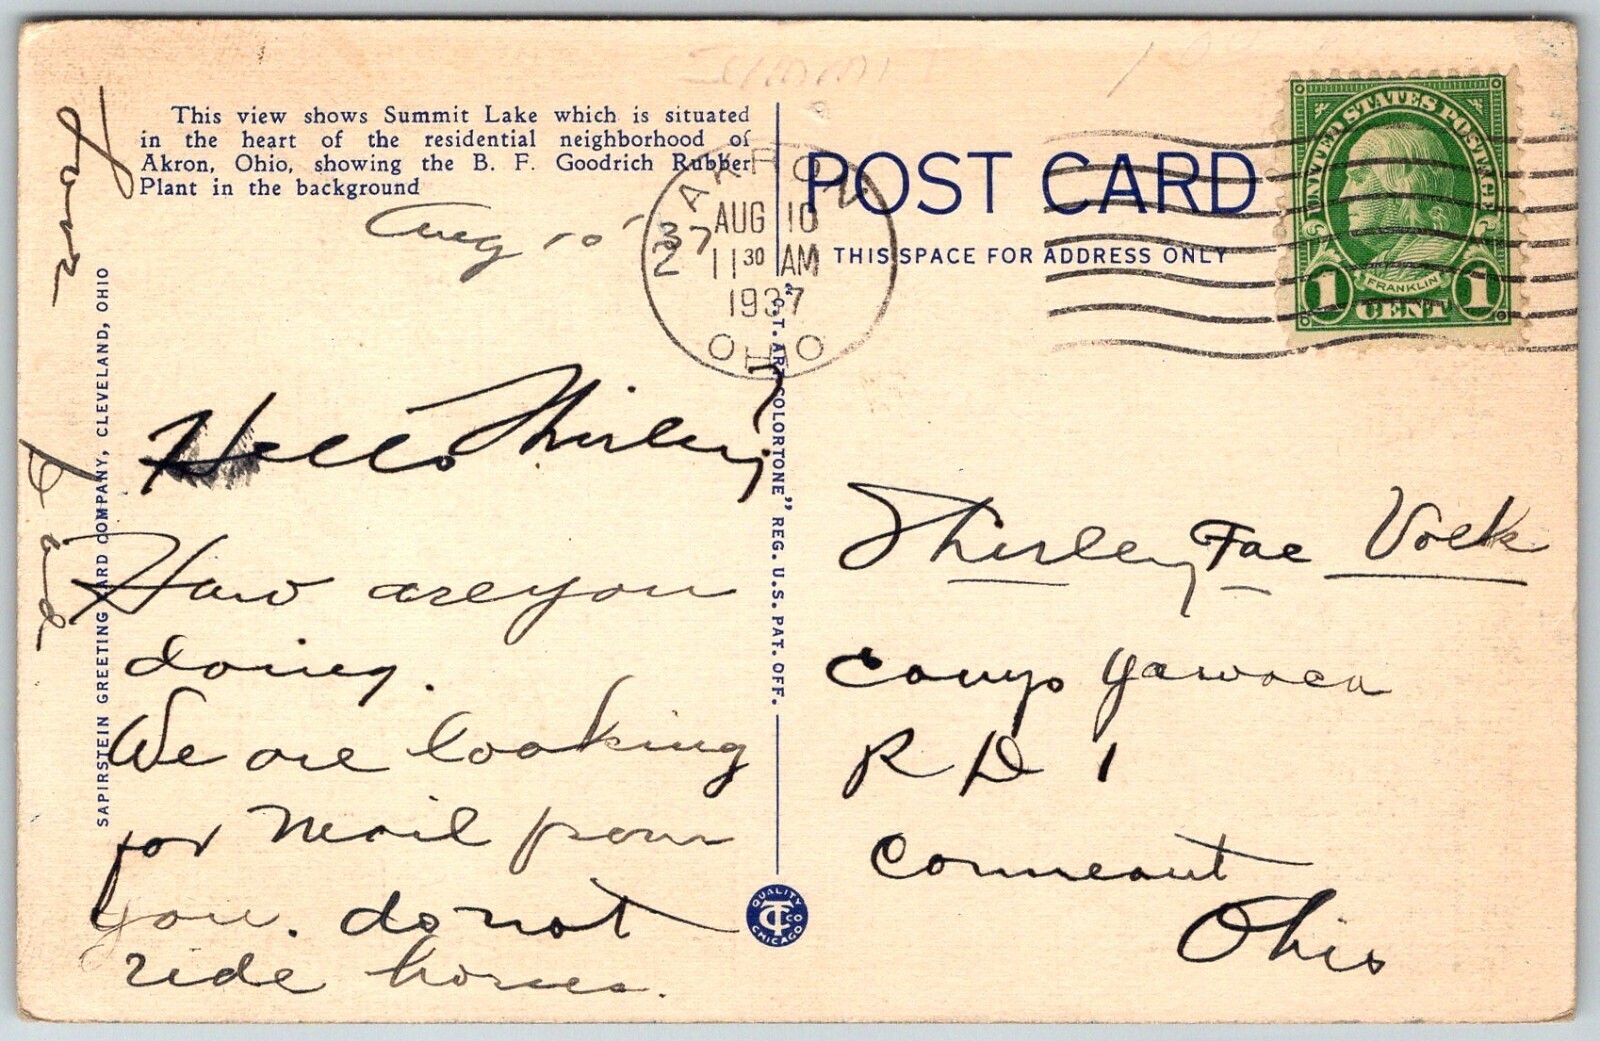 This view shows Summit Lake which is situated
in the heart of the residential neighborhood of
Akron, Ohio, showing the B. F. Goodrich Rubber
Plant in the background
Aug 10 - 37
Hello Shirley
How are you
doing.
We are looking
for mail from
you. do not
ride horses.
Your
Dad
SAPIRSTEIN GREETING CARD COMPANY, CLEVELAND, OHIO
AKRON
AUG 10
11 30 AM
1937
OHIO
2
"C.T. ART-COLORTONE" REG. U.S. PAT. OFF.
QUALITY
CT CO
CHICAGO
POST CARD
THIS SPACE FOR ADDRESS ONLY
UNITED STATES POSTAGE
FRANKLIN
1 CENT 1
Shirley Fae Volk
Camp Yawoca
R D 1
Conneaut
Ohio